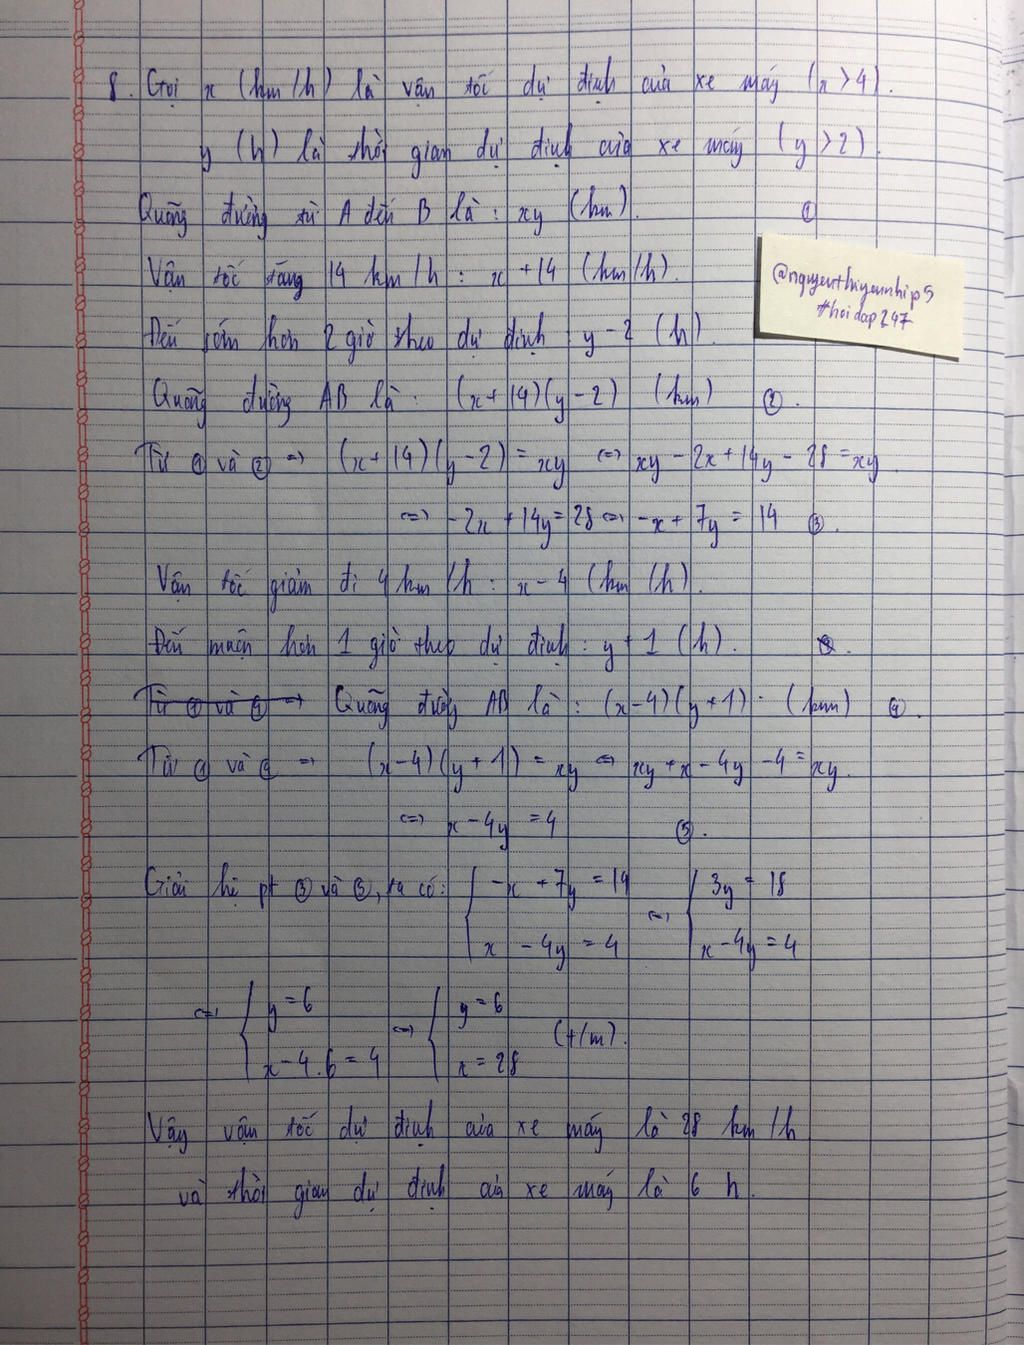 8. Gọi x (km/h) là vận tốc dự định của xe máy (x > 4).
y (h) là thời gian dự định của xe máy (y > 2).
Quãng đường từ A đến B là : xy (km). ①
Vận tốc tăng 14 km/h : x + 14 (km/h).
@nguyenthiyennhip5
#hoidap247
Đến sớm hơn 2 giờ theo dự định : y - 2 (h).
Quãng đường AB là : (x + 14)(y - 2) (km) ②.
Từ ① và ② => (x + 14)(y - 2) = xy <=> xy - 2x + 14y - 28 = xy
<=> -2x + 14y = 28 <=> -x + 7y = 14 ③.
Vận tốc giảm đi 4 km/h : x - 4 (km/h).
Đến muộn hơn 1 giờ theo dự định : y + 1 (h).
Từ ① và ④ => Quãng đường AB là : (x - 4)(y + 1) (km) ④.
Từ ① và ④ => (x - 4)(y + 1) = xy <=> xy + x - 4y - 4 = xy.
<=> x - 4y = 4 ⑤.
Giải hệ pt ③ và ⑤, ta có : { -x + 7y = 14 <=> { 3y = 18
x - 4y = 4 x - 4y = 4
<=> { y = 6 <=> { y = 6 (t/m).
x - 4.6 = 4 x = 28
Vậy vận tốc dự định của xe máy là 28 km/h
và thời gian dự định của xe máy là 6 h.